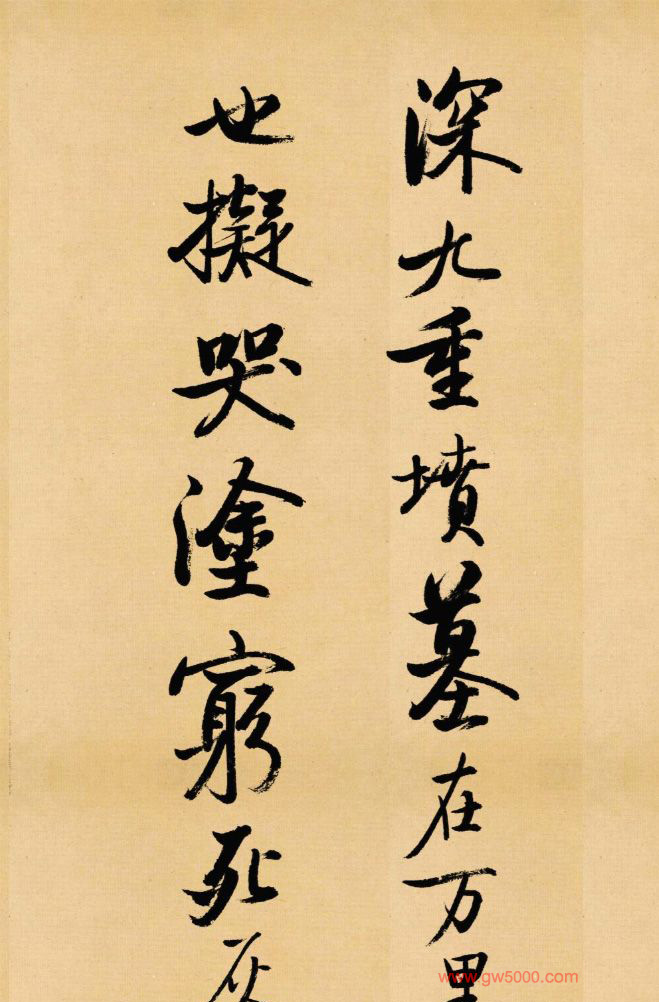 深九重墳墓在万里
也擬哭塗窮死灰
www.gw5000.com